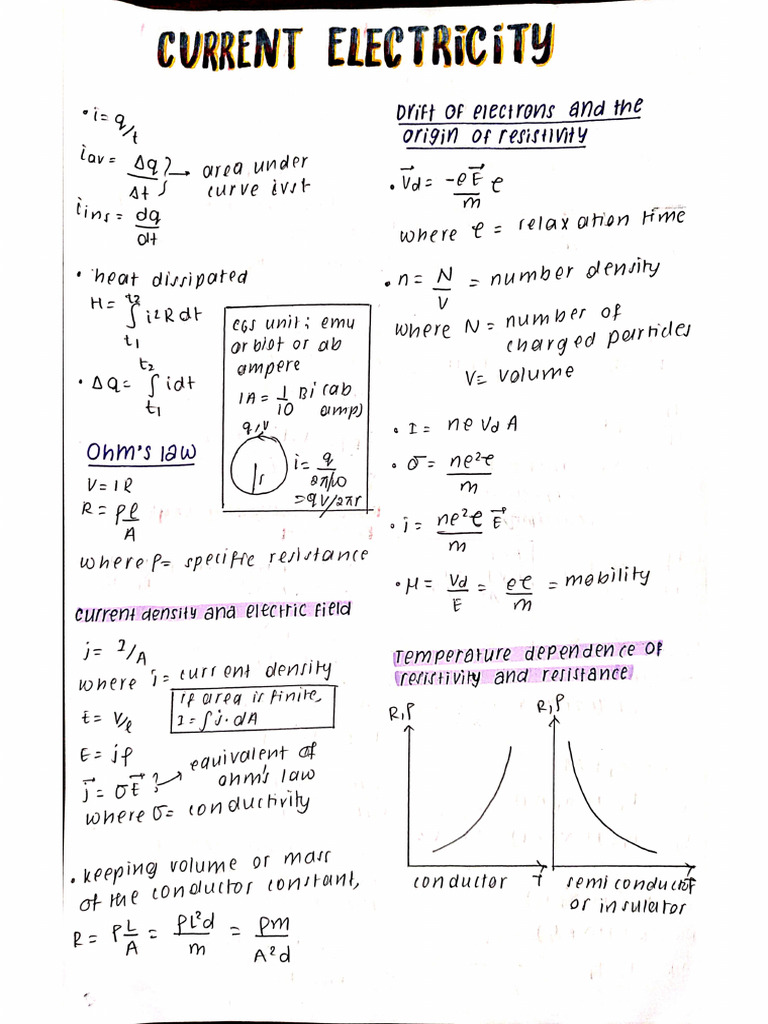 CURRENT ELECTRICITY
• i = q/t
iav = Δq/Δt } → area under
curve ivst
iins = dq/dt
• heat dissipated
H = ∫ i²R dt
t2
t1
• Δq = ∫ idt
t2
t1
CGS unit; emu
or biot or ab
ampere
1A = 1/10 Bi (ab
amp)
q, v
r
i = q/2π/ω
= qV/2πr
Ohm's law
V = IR
R = ρℓ/A
where ρ = specific resistance
current density and electric field
j = I/A
where j = current density
If area is finite,
I = ∫ j · dA
E = V/ℓ
E = jρ
j⃗ = σE⃗ } → equivalent of
ohm's law
where σ = conductivity
• keeping volume or mass
of the conductor constant,
R = ρL/A = ρL²d/m = ρm/A²d
Drift of electrons and the
origin of resistivity
• V⃗d = -eE⃗/m τ
where τ = relaxation time
• n = N/V = number density
where N = number of
charged particles
V = volume
• I = neVdA
• σ = ne²τ/m
• j = ne²τ/m E⃗
• μ = Vd/E = eτ/m = mobility
Temperature dependence of
resistivity and resistance
R,ρ
R,ρ
conductor T
semiconductor T
or insulator